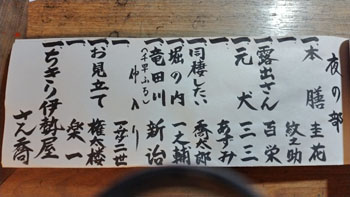 夜の部
一 本膳 圭花
一 紋之助
一 露出さん 百栄
一 元犬 三三
一 あずみ
一 同棲したい 喬太郎
一 堀の内 一之輔
一 竜田川 新治
(千早ふる)
仲入り
一 お見立て 権太楼
一 楽一
一 ちきり伊勢屋 さん喬